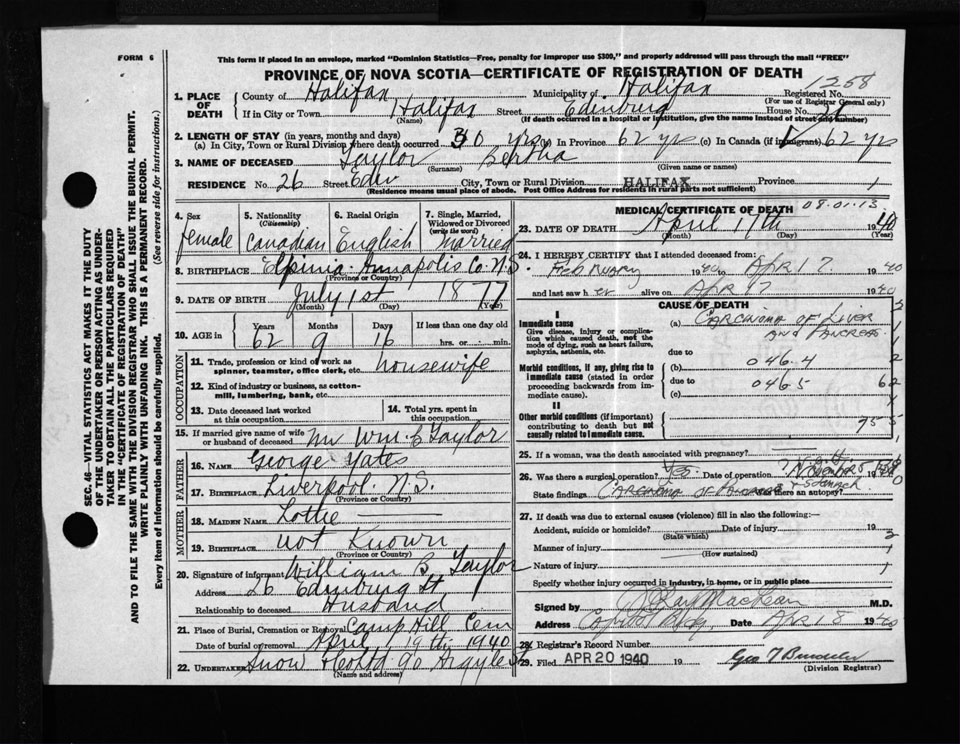 FORM 6
This form if placed in an envelope, marked "Dominion Statistics—Free, penalty for improper use $300," and properly addressed will pass through the mail "FREE"
PROVINCE OF NOVA SCOTIA—CERTIFICATE OF REGISTRATION OF DEATH
1. PLACE OF DEATH
County of Halifax Municipality of Halifax Registered No. 1258
(For use of Registrar General only)
If in City or Town Halifax Street Edinburg House No. 26
(Name) (If death occurred in a hospital or institution, give the name instead of street and number)
2. LENGTH OF STAY (in years, months and days)
(a) In City, Town or Rural Division where death occurred 30 yrs (b) In Province 62 yrs (c) In Canada (if immigrant) 62 yrs
3. NAME OF DECEASED Taylor Bertha
(Surname) (Given name or names)
RESIDENCE No. 26 Street Edin City, Town or Rural Division HALIFAX Province
(Residence means usual place of abode. Post Office Address for residents in rural parts not sufficient)
4. Sex female
5. Nationality (Citizenship) Canadian
6. Racial Origin English
7. Single, Married, Widowed or Divorced (write the word) Married
8. BIRTHPLACE Annapolis Co. N.S.
(Province or Country)
9. DATE OF BIRTH July 1st 1877
(Month) (Day) (Year)
10. AGE in Years 62 Months 9 Days 16 If less than one day old hrs. or min.
OCCUPATION
11. Trade, profession or kind of work as spinner, teamster, office clerk, etc. housewife
12. Kind of industry or business, as cotton-mill, lumbering, bank, etc.
13. Date deceased last worked at this occupation
14. Total yrs. spent in this occupation
15. If married give name of wife or husband of deceased Mr Wm. E Taylor
FATHER
16. NAME George Yates
17. BIRTHPLACE Liverpool N.S.
(Province or Country)
MOTHER
18. MAIDEN NAME Lottie
19. BIRTHPLACE not Known
(Province or Country)
20. Signature of informant William Taylor
Address 26 Edinburg St
Relationship to deceased Husband
21. Place of Burial, Cremation or Removal Camp Hill Cem
Date of burial or removal April 19th 1940
22. UNDERTAKER Snow & Co Ltd 90 Argyle St
(Name and address)
MEDICAL CERTIFICATE OF DEATH 08.01.13.
23. DATE OF DEATH April 17th 1940
(Month) (Day) (Year)
24. I HEREBY CERTIFY that I attended deceased from:
February 1940 to Apr 17 1940
and last saw her alive on Apr 17 1940
CAUSE OF DEATH
I
Immediate cause
Give disease, injury or complication which caused death, not the mode of dying, such as heart failure, asphyxia, asthenia, etc.
(a) Carcinoma of Liver and Pancreas
due to
Morbid conditions, if any, giving rise to immediate cause (stated in order proceeding backwards from immediate cause).
(b) 046.4
due to 0465
(c)
II
Other morbid conditions (if important) contributing to death but not causally related to immediate cause.
25. If a woman, was the death associated with pregnancy?
26. Was there a surgical operation? Yes. Date of operation November
State findings Carcinoma of Pancreas & Stomach Was there an autopsy?
27. If death was due to external causes (violence) fill in also the following:—
Accident, suicide or homicide? Date of injury 19
(State which)
Manner of injury
(How sustained)
Nature of injury
Specify whether injury occurred in industry, in home, or in public place
Signed by MacKean M.D.
Address Capitol Bldg. Date Apr 18 1940
28. Registrar's Record Number
29. Filed APR 20 1940 19 Geo T
(Division Registrar)
SEC. 46—VITAL STATISTICS ACT MAKES IT THE DUTY
OF THE UNDERTAKER OR PERSON ACTING AS UNDERTAKER TO OBTAIN ALL THE PARTICULARS REQUIRED
IN THE "CERTIFICATE OF REGISTRATION OF DEATH"
AND TO FILE THE SAME WITH THE DIVISION REGISTRAR WHO SHALL ISSUE THE BURIAL PERMIT.
WRITE PLAINLY WITH UNFADING INK. THIS IS A PERMANENT RECORD.
Every item of information should be carefully supplied. (See reverse side for instructions.)